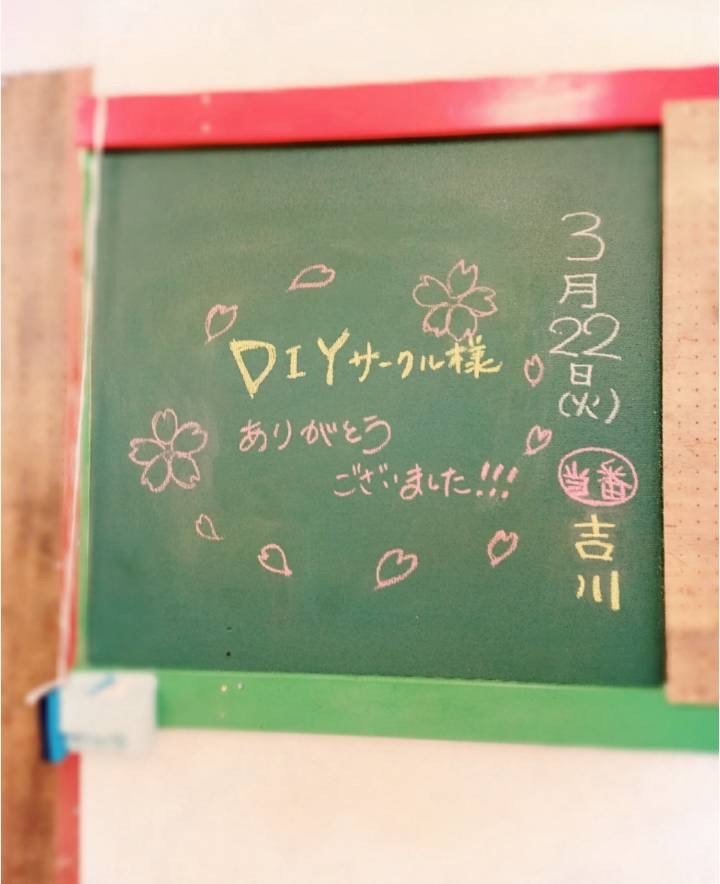 3月22日(火)
当番
吉川
DIYサークル様
ありがとう
ございました!!!